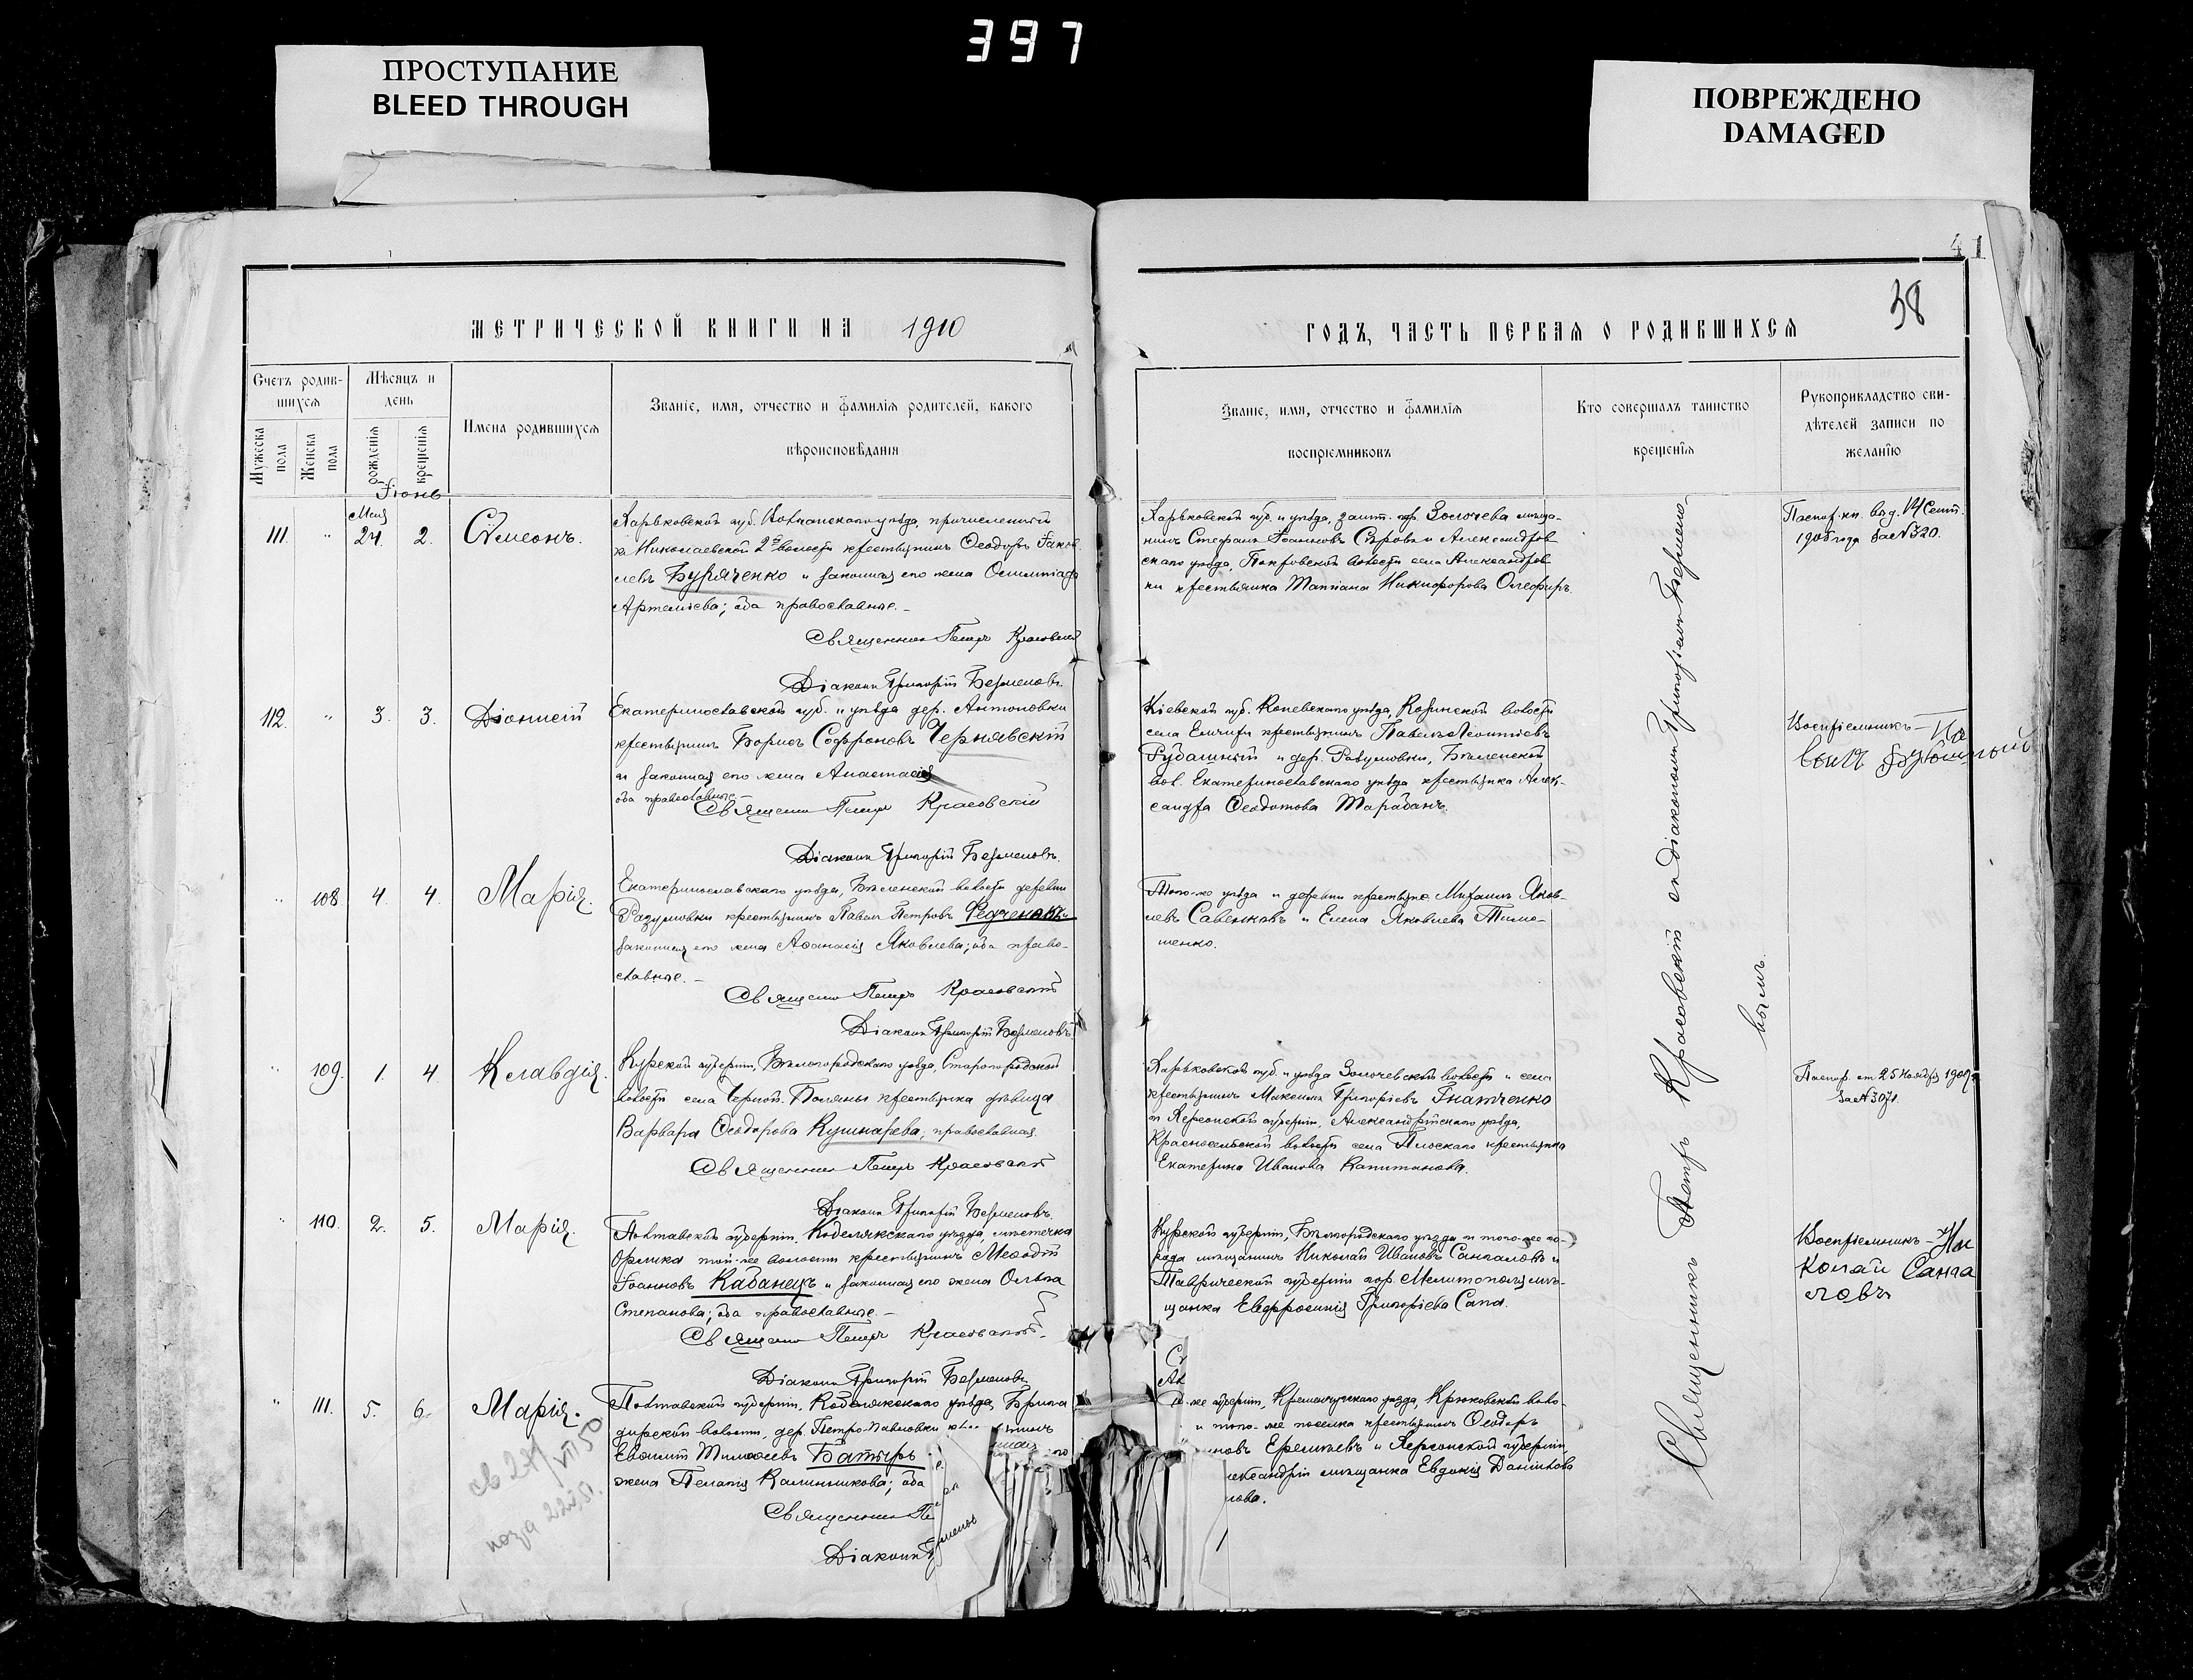 397
ПРОСТУПАНИЕ
BLEED THROUGH
ПОВРЕЖДЕНО
DAMAGED
41
38
МЕТРИЧЕСКОЙ КНИГИ НА 1910
ГОДЪ, ЧАСТЬ ПЕРВАЯ О РОДИВШИХСЯ
Счетъ родив-
шихся
Мужеска пола
Женска пола
Мѣсяцъ и
день
рожденія
крещенія
Имена родившихся
Званіе, имя, отчество и фамилія родителей, какого
вѣроисповѣданія
Званіе, имя, отчество и фамилія
воспріемниковъ
Кто совершалъ таинство
крещенія
Рукоприкладство сви-
дѣтелей записи по
желанію
Іюнь
Мая
111. " 24. 2. Сѵмеонъ.
Харьковской губ. Волчанскаго уѣзда, причисленный
къ Николаевской 2й волости крестьянинъ Ѳеодоръ Іаков-
левъ Бурляченко и законная его жена Олимпіада
Артемьева; оба православные. -
Священникъ Петръ Красовскій
Діаконъ Григорій Безменовъ.
Харьковской губ. и уѣзда, зашт. гор. Золочева мѣща-
нинъ Стефанъ Іоанновъ Сѣровъ и Александров-
скаго уѣзда, Покровской волости села Александров-
ки крестьянка Татіана Никифорова Олефиръ.
Паспор. кн. выд. 14 Сент.
1905 года за №320.
112. " 3. 3. Діонисій
Екатеринославской губ. и уѣзда дер. Антоновки
крестьянинъ Борисъ Софроновъ Чернявскій
и законная его жена Анастасія
оба православные. -
Священ Петръ Красовскій
Діаконъ Григорій Безменовъ.
Кіевской губ. Каневскаго уѣзда, Козинской волости
села Емчихи крестьянинъ Павелъ Леонтьевъ
Рубашный и дер. Разумовки, Бѣленской
вол. Екатеринославскаго уѣзда крестьянка Алек-
сандра Ѳеодотова Тарабанъ.
Воспріемникъ - Па
велъ Рубашный
" 108. 4. 4. Марія.
Екатеринославскаго уѣзда, Бѣленской волости деревни
Разумовки крестьянинъ Павелъ Петровъ Федченко и
законная его жена Аѳанасія Яковлева; оба право-
славные. -
Священ Петръ Красовскій
Діаконъ Григорій Безменовъ.
Того-же уѣзда и деревни крестьяне Михаилъ Яков-
левъ Савенковъ и Елена Яковлева Тимо-
шенко.
" 109. 1. 4. Клавдія.
Курской губерніи, Бѣлгородскаго уѣзда, Старогородской
волости села Черной Поляны крестьянка дѣвица
Варвара Ѳеодорова Кушнарева; православная.
Священникъ Петръ Красовскій
Діаконъ Григорій Безменовъ.
Харьковской губ. и уѣзда Золочевской волости и села
крестьянинъ Максимъ Григорьевъ Гнатченко
и Херсонской губерніи, Александрійскаго уѣзда,
Красносельской волости села Плоскаго крестьянка
Екатерина Иванова Капитанова.
Паспор. от 25 Ноября 1909 г.
за №3071.
" 110. 2. 5. Марія.
Полтавской губерніи, Кобелякскаго уѣзда, мѣстечка
Орлика той-же волости крестьянинъ Меѳодій
Іоанновъ Кабанецъ и законная его жена Ольга
Степанова; оба православные. -
Священ Петръ Красовскій.
Діаконъ Григорій Безменовъ
Курской губерніи, Бѣлгородскаго уѣзда и того-же го-
рода мѣщанинъ Николай Ивановъ Сангаловъ и
Таврической губерніи гор. Мелитополя мѣ-
щанка Евфросинія Григорьева Сапа.
Воспріемникъ - Ни
колай Санга
ловъ
" 111. 5. 6. Марія.
Полтавской губерніи, Кобелякскаго уѣзда, Брига
дировской волости, дер. Петро-Павловки
Евѳимій Тимоѳеевъ Батырь
жена Пелагія Калинникова; оба
Священникъ Пе
Діаконъ Г
менов
же губерніи, Кременчугскаго уѣзда, Крюковской воло-
и того-же поселка крестьянинъ Ѳеодоръ
новъ Еремѣевъ и Херсонской губерніи,
лександріи мѣщанка Евдокія Даніилова
нова.
Священникъ Петръ Красовскій съ діакономъ Григоріемъ Безмено-
вымъ.